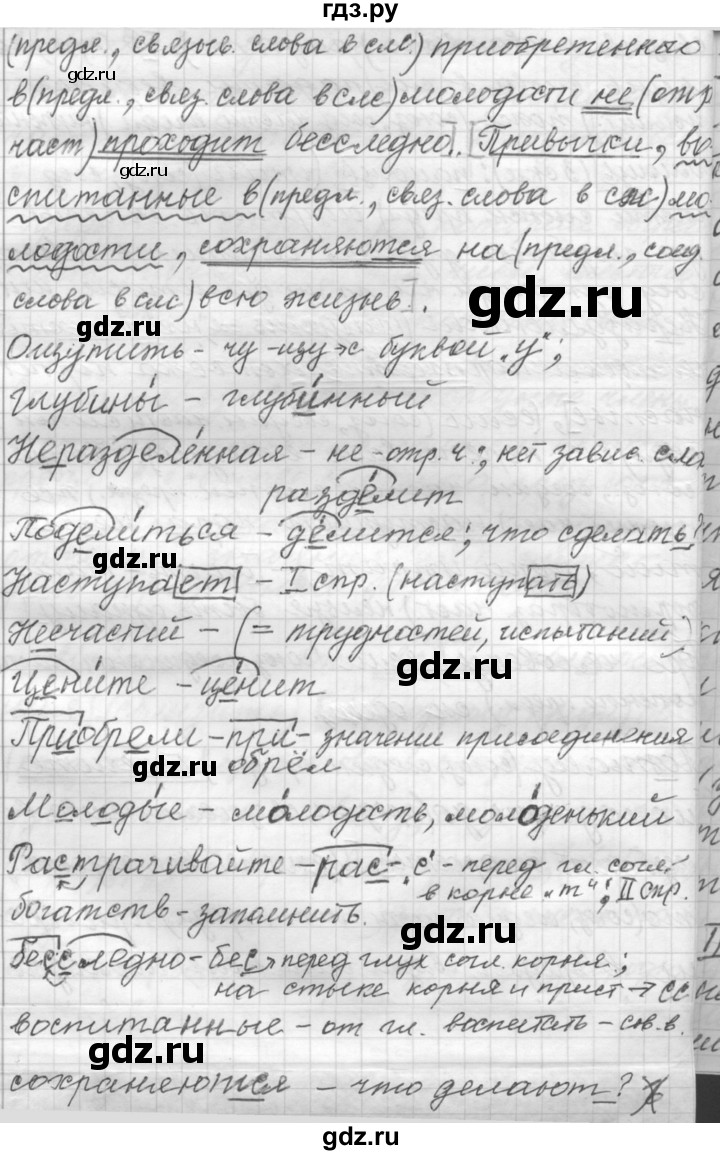 гдз.ру
(предл., связыв. слова в слс) приобретенного
в (предл., связ. слова в слс) молодости не (отр
част) проходит бесследно]. [Привычки, во
спитанные в (предл., связ. слова в слс) мо
лодости, сохраняются на (предл., соед.
слова в слс) всю жизнь].
Ощутить - чу -щу → с буквой "у";
глубины́ - глуби́нный
Неразделённая - не - отр. ч.; нет завис. сло
разде́лит
Подели́ться - де́лится; что сделать?
Наступает - I спр. (наступать)
Несчастий - (= трудностей, испытаний)
Цени́те - це́нит
Приобрели - при- значении присоединения
обрёл
Молоды́е - мо́лодость, моло́денький
Растрачивайте - рас-, с - перед гл. согл.
в корне "т"; II спр.
богатств - запомнить.
бесследно - бес → перед глух согл. корня;
на стыке корня и прист → сс
воспитанные - от гл. воспитать - сов.в.
сохраняются - что делают?
gdz.ru
gdz.ru
gdz.ru
gdz.ru
gdz.ru
gdz.ru
gdz.ru
gdz.ru
gdz.ru
gdz.ru
gdz.ru
gdz.ru
gdz.ru